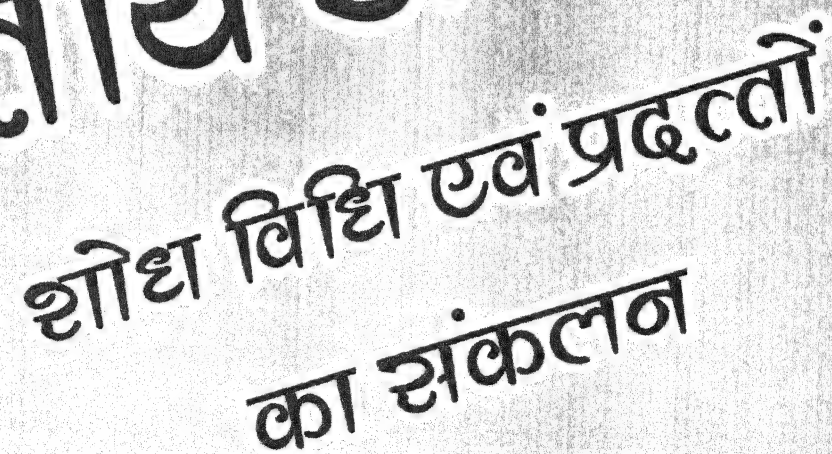 शोध विधि एवं प्रदत्तों
का संकलन